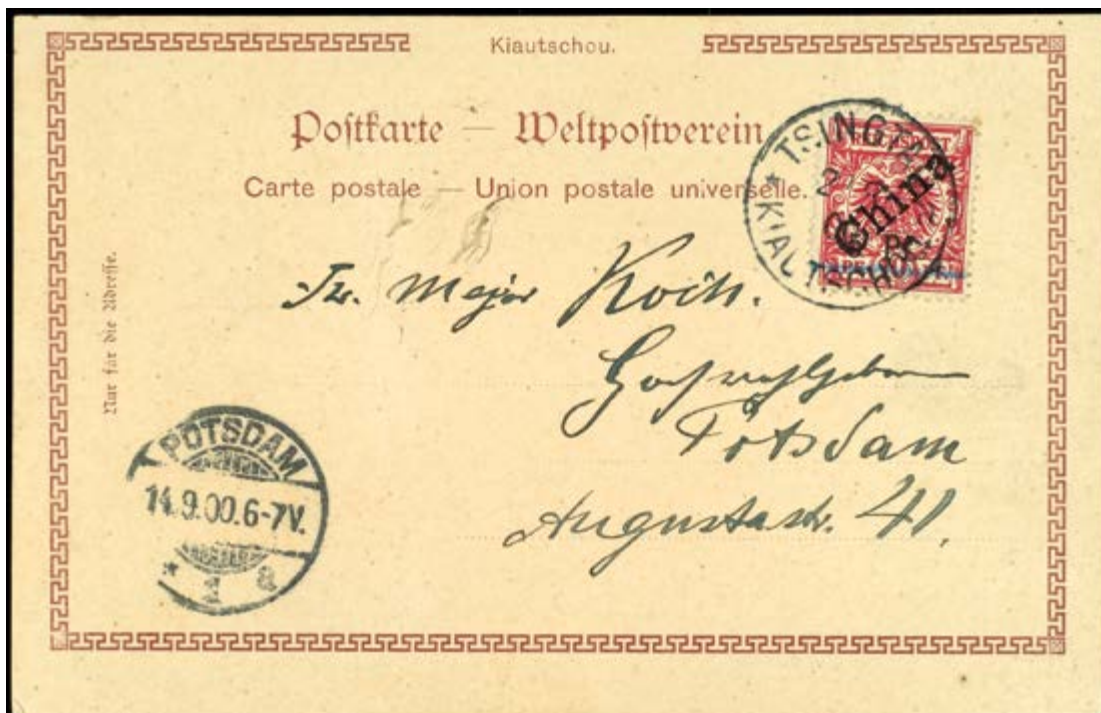 Kiautschou.
Postkarte — Weltpostverein
Carte postale — Union postale universelle.
Nur für die Adresse.
TSINGTAU
KIAUTSCHOU
REICHSPOST
China
Major Koch.
Potsdam
Augustastr. 41.
POTSDAM
14.9.00.6-7V.
* 1 a